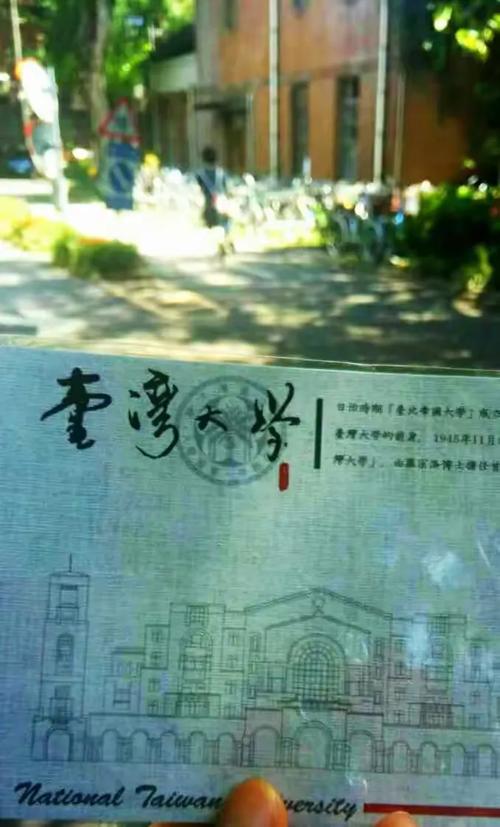 臺灣大學
日治時期「臺北帝國大學」
臺灣大學的前身。1945年11月
灣大學」。由羅宗洛博士擔任首
National Taiwan versity